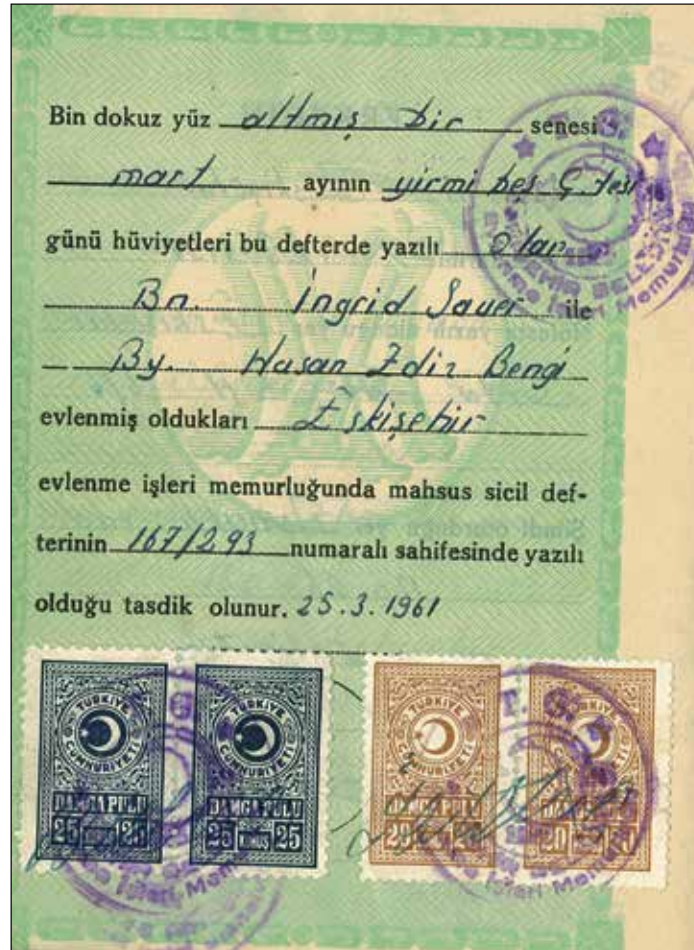 Bin dokuz yüz altmış bir senesi
mart ayının yirmi beş Ç.tesi
günü hüviyetleri bu defterde yazılı olan
Bn. İngrid Sauer ile
By. Hasan Ediz Bengi
evlenmiş oldukları Eskişehir
evlenme işleri memurluğunda mahsus sicil def-
terinin 167/293 numaralı sahifesinde yazılı
olduğu tasdik olunur. 25.3.1961
TÜRKİYE CUMHURİYETİ
DAMGA PULU
25 KURUŞ 25
TÜRKİYE CUMHURİYETİ
DAMGA PULU
25 KURUŞ 25
TÜRKİYE CUMHURİYETİ
DAMGA PULU
20 20
TÜRKİYE CUMHURİYETİ
20 20